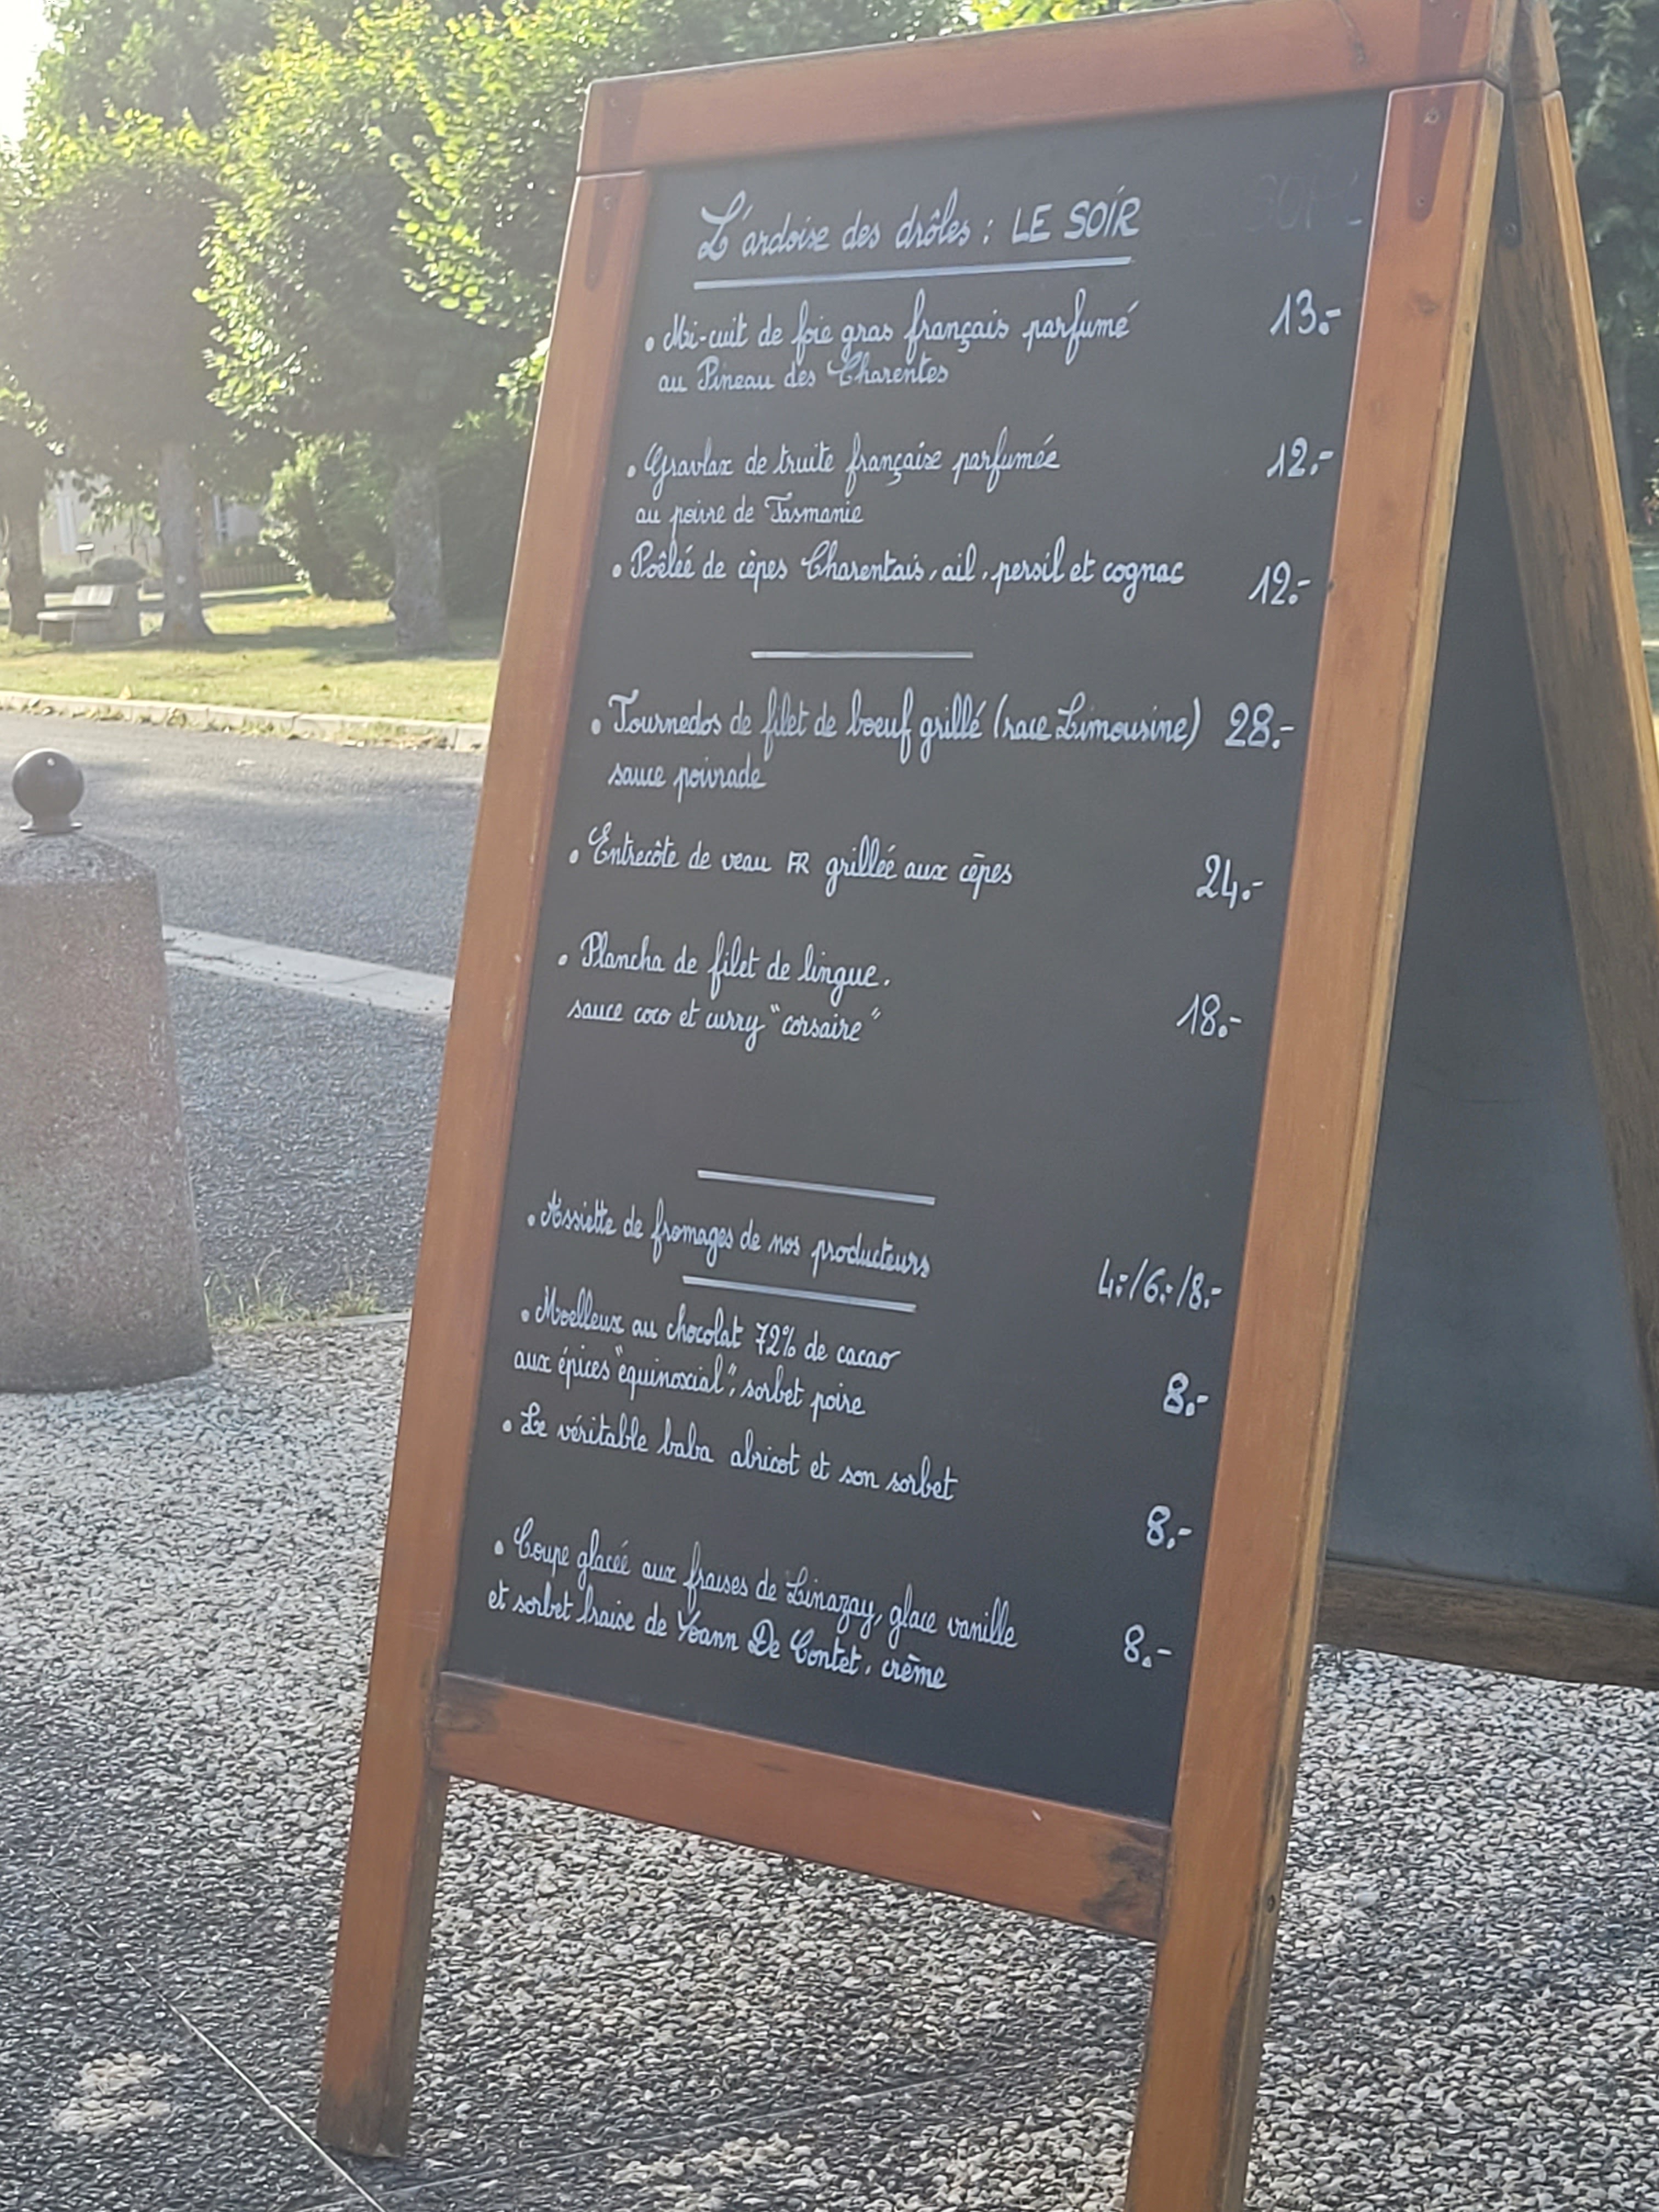 L'ardoise des drôles : LE SOIR
• Mi-cuit de foie gras français parfumé 13.-
au Pineau des Charentes
• Gravlax de truite française parfumée 12.-
au poivre de Tasmanie
• Poêlée de cèpes Charentais, ail, persil et cognac 12.-
• Tournedos de filet de boeuf grillé (race Limousine) 28.-
sauce poivrade
• Entrecôte de veau FR grillée aux cêpes 24.-
• Plancha de filet de lingue.
sauce coco et curry "corsaire" 18.-
• Assiette de fromages de nos producteurs 4.-/6.-/8.-
• Moelleux au chocolat 72% de cacao
aux épices "équinoxial", sorbet poire 8.-
• Le véritable baba abricot et son sorbet 8.-
• Coupe glacée aux fraises de Linazay, glace vanille 8.-
et sorbet fraise de Yoann De Contet, crème